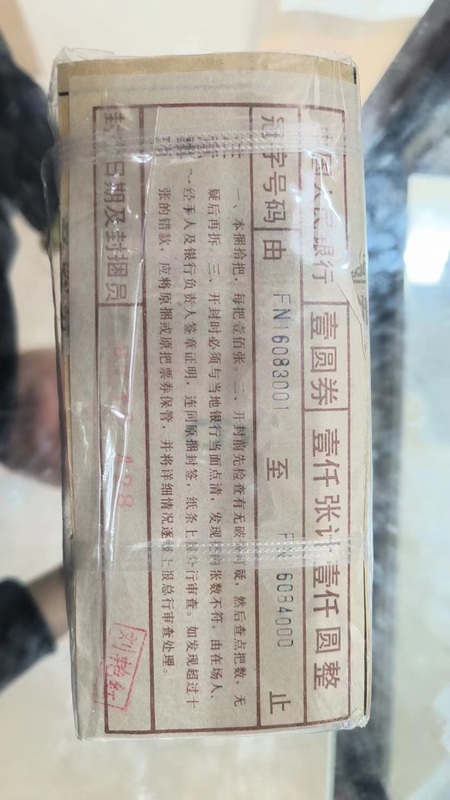 中国人民银行 壹圆券 壹仟张计壹仟圆整
冠字号码 由 FN16083001 至 FN16084000 止
一、本捆拾把,每把壹佰张。二、开封前先检查有无破 可疑,然后查点把数,无
疑后再拆。三、开封时必须与当地银行当面点清,发现 内张数不符,由在场人、
经手人及银行负责人签章证明,连同原捆封签,纸条上 分行审查。如发现超过十
张的错款,应将原捆或原把票券保管,并将详细情况逐级上报总行审查处理。
封捆日期及封捆员